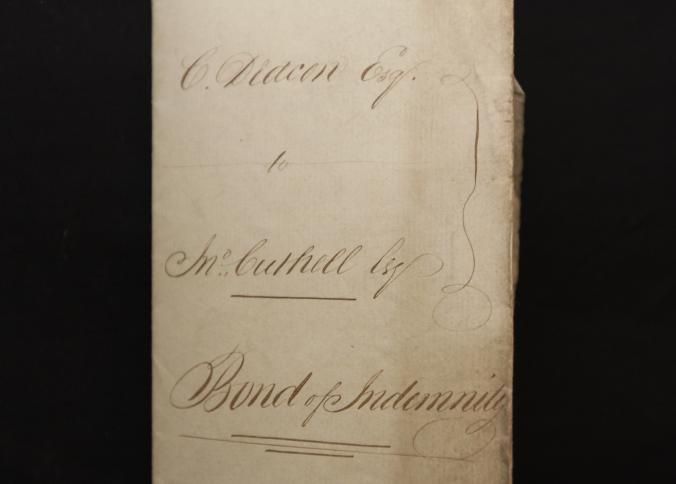 C. Deacon Esqr.
to
Jno. Cuthell Esq
Bond of Indemnity